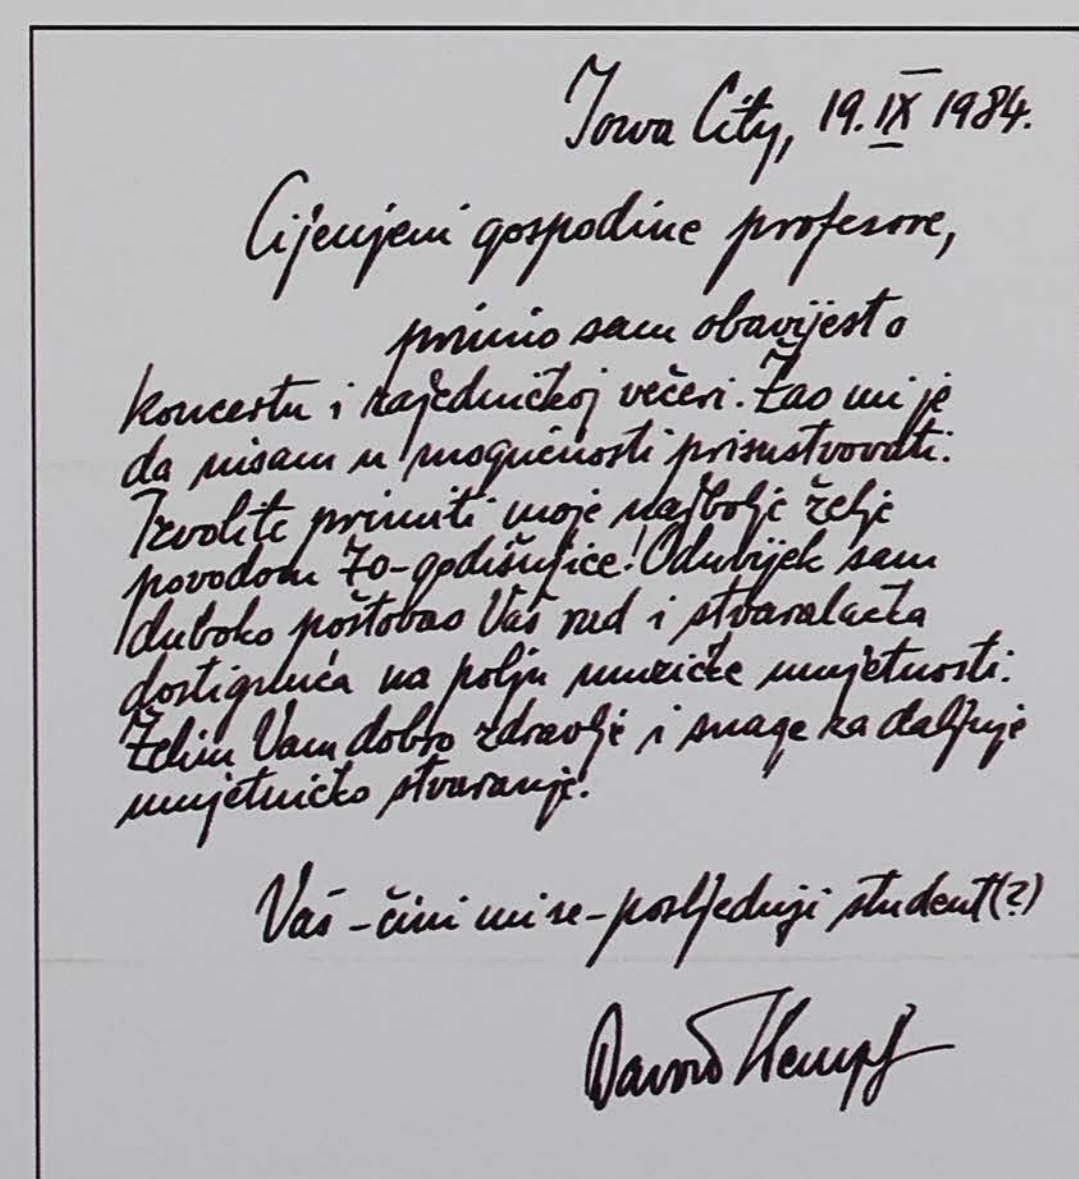 Iowa City, 19. IX 1984.
Cijenjeni gospodine profesore,
primio sam obavijest o
koncertu i zajedničkoj večeri. Žao mi je
da nisam u mogućnosti prisustvovati.
Izvolite primiti moje najbolje želje
povodom 70-godišnjice! Oduvijek sam
duboko poštovao Vaš rad i stvaralačka
dostignuća na polju muzičke umjetnosti.
Želim Vam dobro zdravlje i snage za daljnje
umjetničko stvaranje!
Vaš - čini mi se - posljednji student(?)
Davorin Kempf